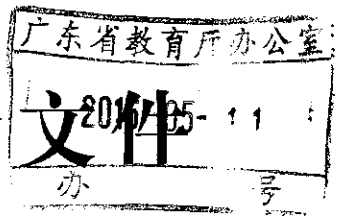 广东省教育厅办公室
2016-05-11
文件
办 号